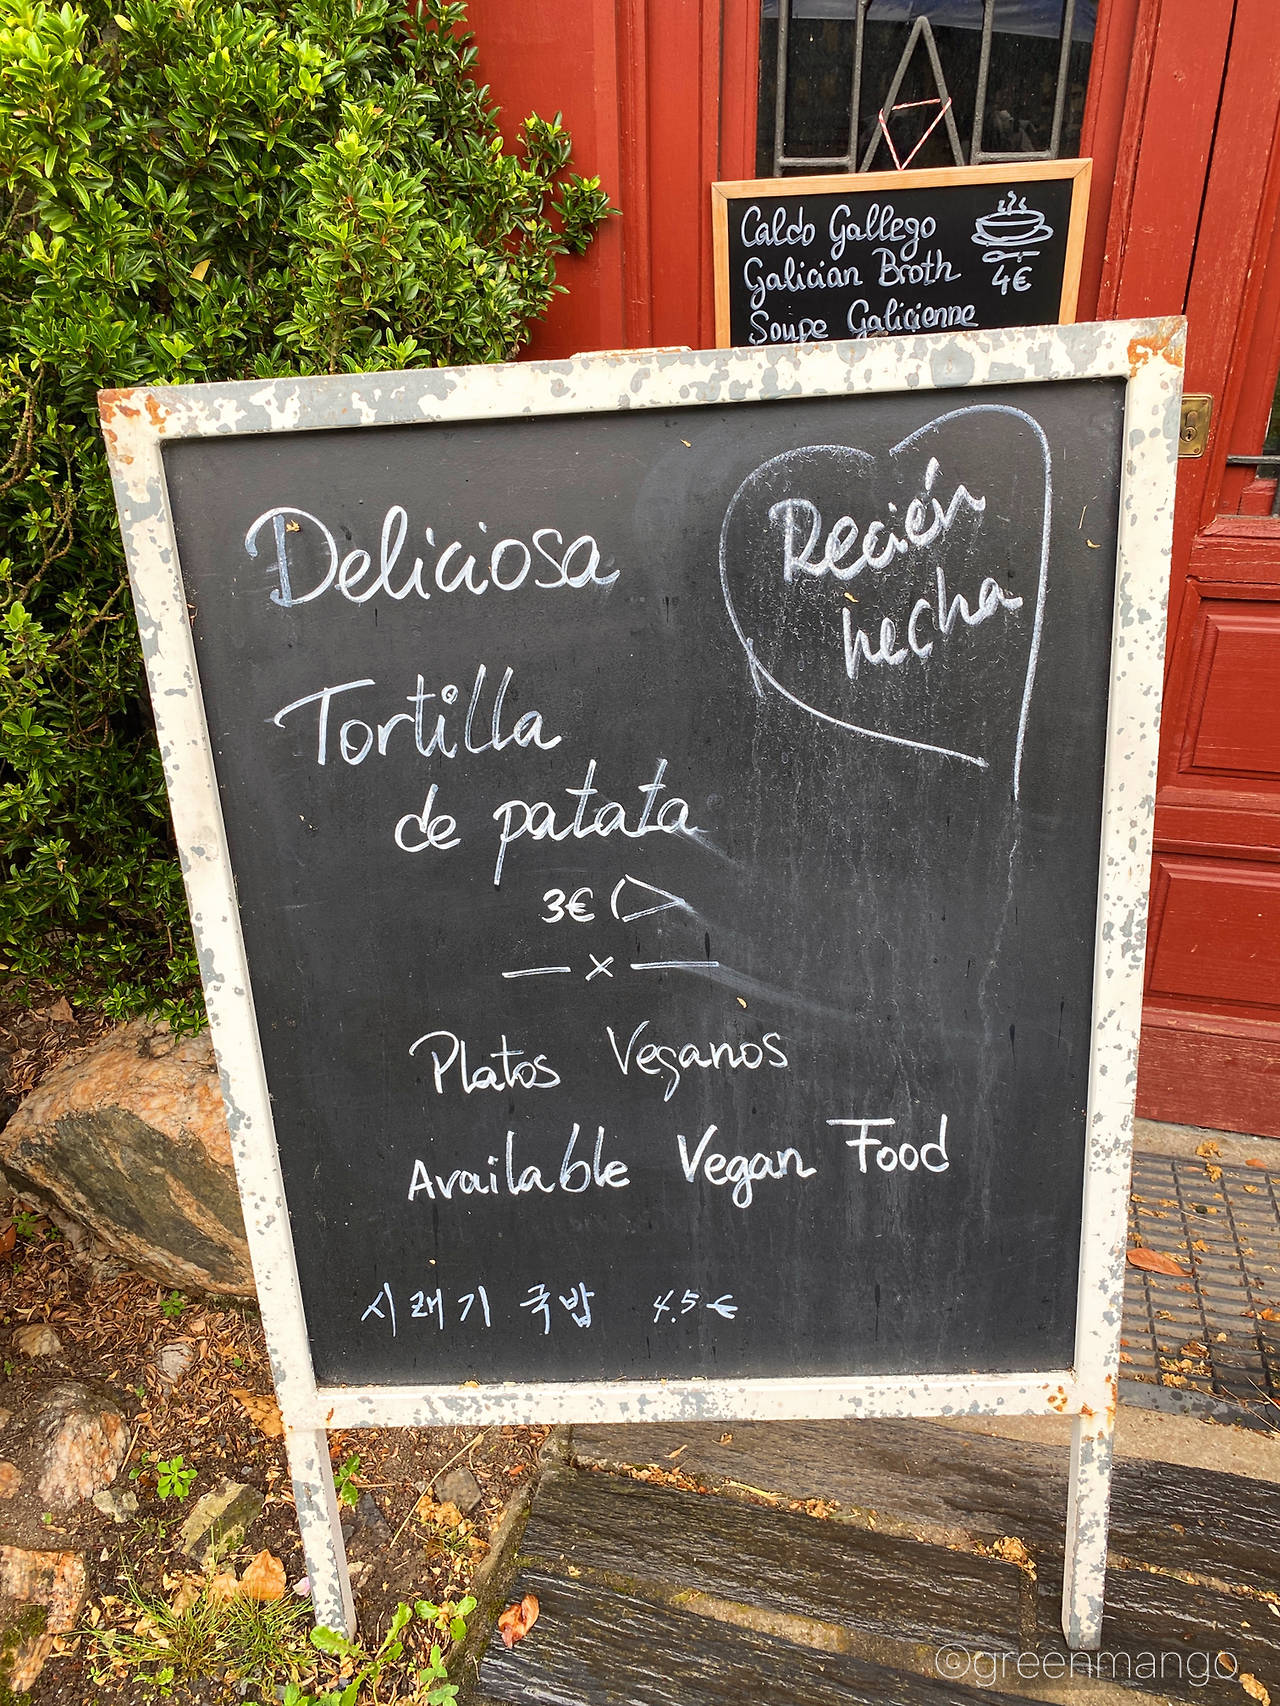 Caldo Gallego
Galician Broth
4€
Soupe Galicienne
Recién
hecha
Deliciosa
Tortilla
de patata
3€
— x —
Platos Veganos
Available Vegan Food
시래기 국밥 4.5€
©greenmango